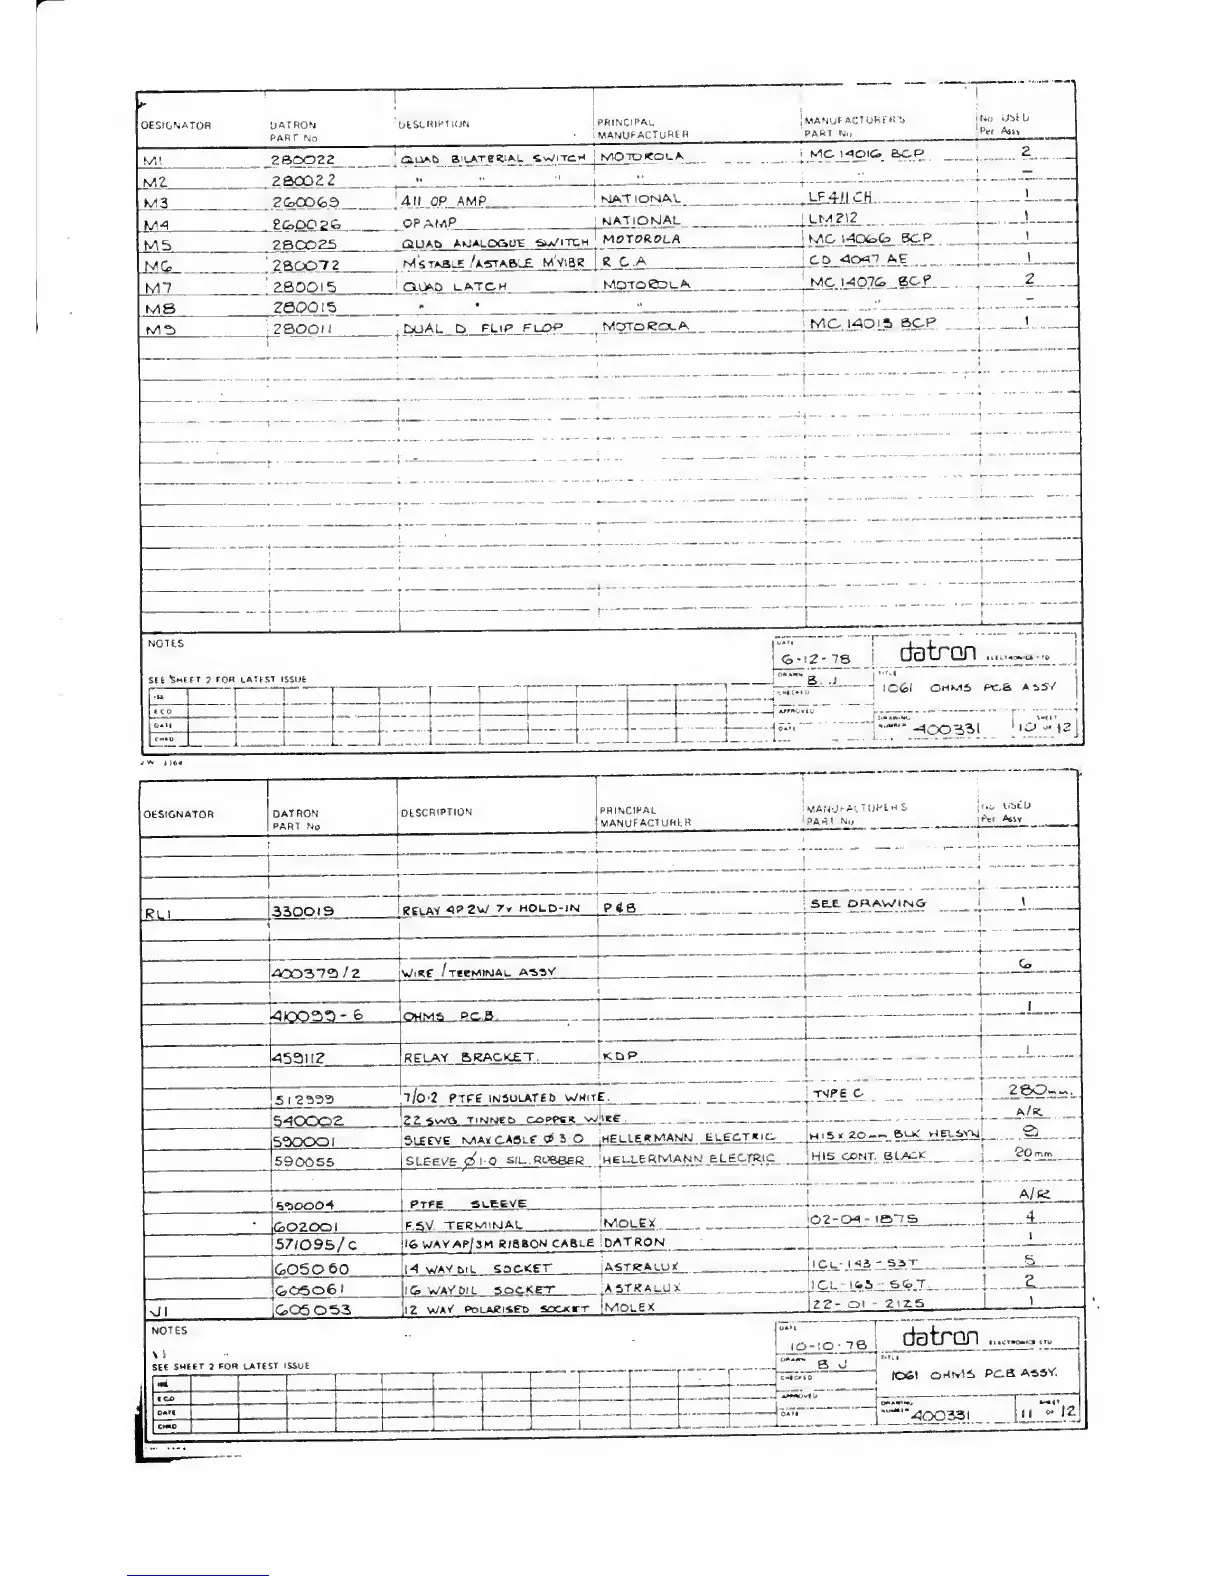 DESIGNATOR DATRON PART No DESCRIPTION PRINCIPAL MANUFACTURER MANUFACTURER'S PART No No USED Per Assy
M1 280022 QUAD BILATERIAL SWITCH MOTOROLA MC 14016 BCP 2
M2 280022 " " " " " —
M3 260069 411 OP AMP NATIONAL LF411CH 1
M4 260026 OP AMP NATIONAL LM212 1
M5 280025 QUAD ANALOGUE SWITCH MOTOROLA MC 14066 BCP 1
M6 280072 M'STABLE/ASTABLE M'VIBR R.C.A CD 4047 AE 1
M7 280015 QUAD LATCH MOTOROLA MC 14076 BCP 2
M8 280015 " " " " —
M9 280011 DUAL D FLIP FLOP MOTOROLA MC 14013 BCP 1
NOTES
SEE SHEET 2 FOR LATEST ISSUE
ISS
ECO
DATE
CHKD
DATE 6-12-78 datron ELECTRONICS LTD
DRAWN B.J. TITLE
CHECKED 1061 OHMS PCB ASSY
APPROVED
DATE DRAWING NUMBER 400331 SHEET 10 OF 12
JW 1164
DESIGNATOR DATRON PART No DESCRIPTION PRINCIPAL MANUFACTURER MANUFACTURER'S PART No No USED Per Assy
RL1 330019 RELAY 4P2W 7V HOLD-IN P&B SEE DRAWING 1
400379/2 WIRE/TERMINAL ASSY 6
410099-6 OHMS P.C.B. 1
459112 RELAY BRACKET. KDP 1
512999 7/0·2 PTFE INSULATED WHITE. TYPE C 280mm.
540002 22 SWG TINNED COPPER WIRE A/R
590001 SLEEVE MAX CABLE Ø 3·0 HELLERMANN ELECTRIC H15x20mm BLK HELSYN 9
590055 SLEEVE Ø 1·0 SIL. RUBBER HELLERMANN ELECTRIC H15 CONT. BLACK 20mm
590004 PTFE SLEEVE A/R
602001 F.S.V. TERMINAL MOLEX 02-04-1875 4
571095/C 16 WAY AP/3M RIBBON CABLE DATRON 1
605060 14 WAY DIL SOCKET ASTRALUX ICL-143-S3T 5
605061 16 WAY DIL SOCKET ASTRALUX ICL-163-S6T 2
J1 605053 12 WAY POLARISED SOCKET MOLEX 22-01-2125 1
NOTES
SEE SHEET 2 FOR LATEST ISSUE
ISS
ECO
DATE
CHKD
DATE 10-10-78 datron ELECTRONICS LTD
DRAWN B J TITLE
CHECKED 1061 OHMS PCB ASSY.
APPROVED
DATE DRAWING NUMBER 400331 SHEET 11 OF 12